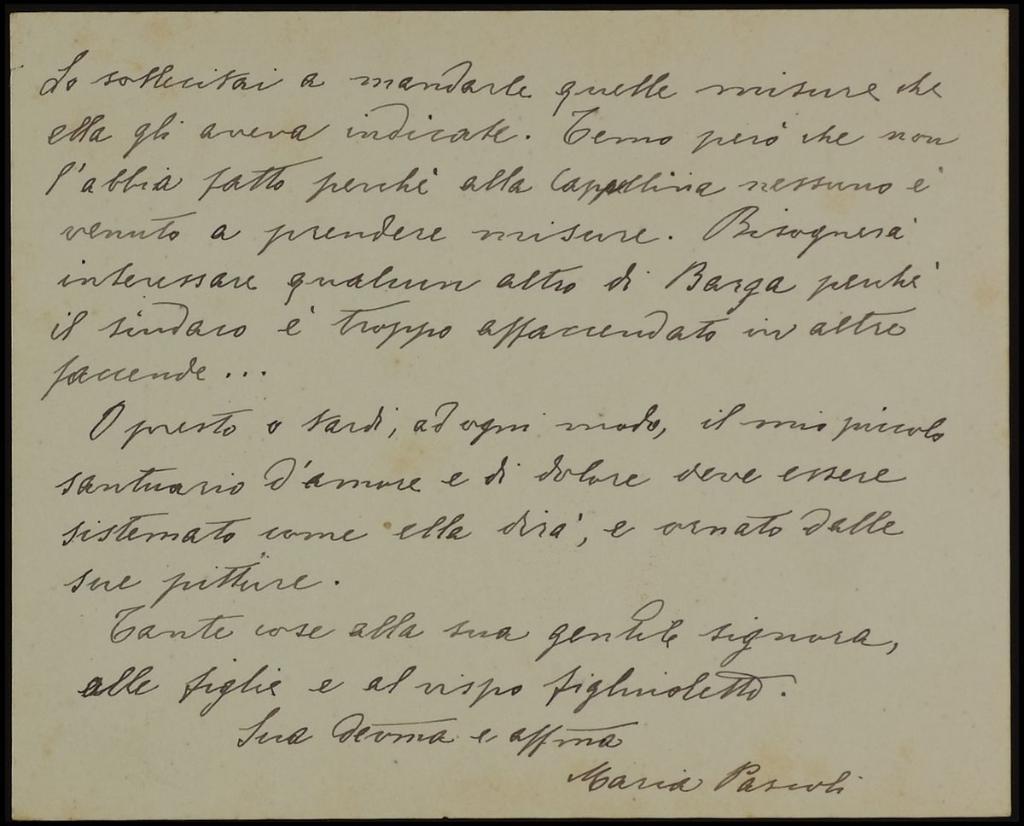 Lo sollecitai a mandarle quelle misure che
ella gli aveva indicate. Temo però che non
l'abbia fatto perchè alla Cappellina nessuno è
venuto a prendere misure. Bisognerà
interessare qualcun altro di Barga perchè
il sindaco è troppo affaccendato in altre
faccende...
O presto o tardi, ad ogni modo, il mio piccolo
santuario d'amore e di dolore deve essere
sistemato come ella dirà, e ornato dalle
sue pitture.
Tante cose alla sua gentile signora,
alle figlie e al vispo figliuoletto.
Sua devma e affma
Maria Pascoli